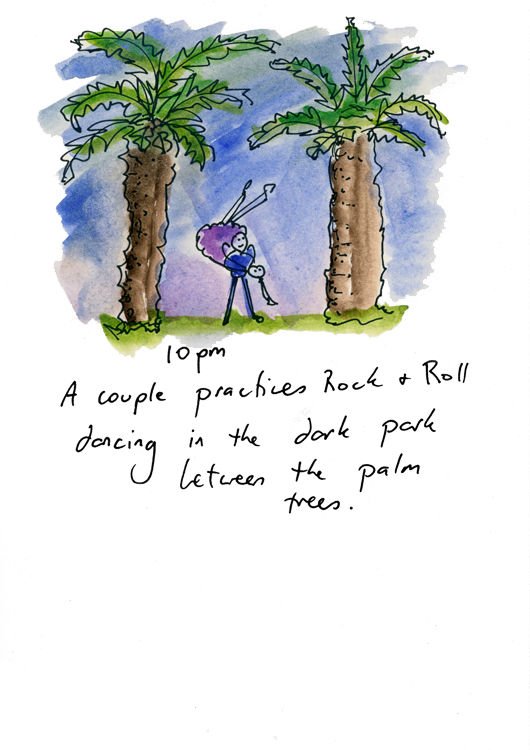 10pm
A couple practices Rock + Roll
dancing in the dark park
between the palm
trees.